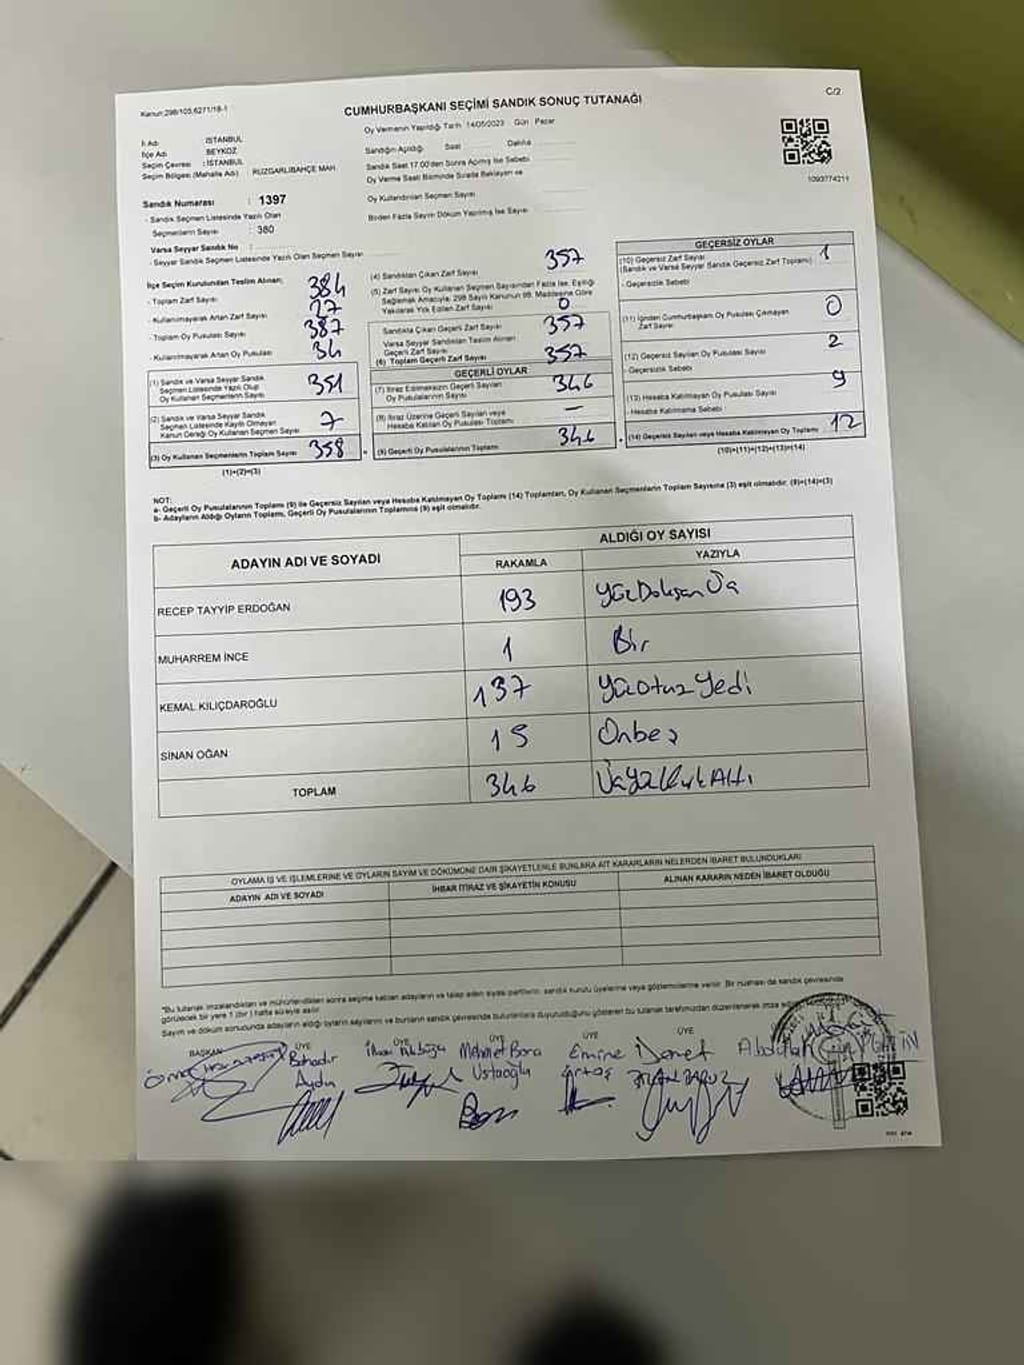 Kanun:298/105,6271/18-1
CUMHURBAŞKANI SEÇİMİ SANDIK SONUÇ TUTANAĞI
C/2
Oy Vermenin Yapıldığı Tarih 14/05/2023 Gün Pazar
İl Adı : İSTANBUL
İlçe Adı : BEYKOZ
Seçim Çevresi : İSTANBUL
Seçim Bölgesi (Mahalle Adı) : RÜZGARLIBAHÇE MAH.
Sandığın Açıldığı Saat Dakika
Sandık Saat 17.00'den Sonra Açılmış İse Sebebi
Oy Verme Saati Bitiminde Sırada Bekleyen ve
Oy Kullandırılan Seçmen Sayısı
Birden Fazla Sayım Döküm Yapılmış İse Sayısı
1093774211
Sandık Numarası : 1397
- Sandık Seçmen Listesinde Yazılı Olan
Seçmenlerin Sayısı : 380
Varsa Seyyar Sandık No :
- Seyyar Sandık Seçmen Listesinde Yazılı Olan Seçmen Sayısı
İlçe Seçim Kurulundan Teslim Alınan;
- Toplam Zarf Sayısı 384
- Kullanılmayarak Artan Zarf Sayısı 27
- Toplam Oy Pusulası Sayısı 387
- Kullanılmayarak Artan Oy Pusulası 34
(1) Sandık ve Varsa Seyyar Sandık
Seçmen Listesinde Yazılı Olup
Oy Kullanan Seçmenlerin Sayısı 351
(2) Sandık ve Varsa Seyyar Sandık
Seçmen Listesinde Kayıtlı Olmayan
Kanun Gereği Oy Kullanan Seçmen Sayısı 7
(3) Oy Kullanan Seçmenlerin Toplam Sayısı 358
(1)+(2)=(3)
(4) Sandıktan Çıkan Zarf Sayısı 357
(5) Zarf Sayısı Oy Kullanan Seçmen Sayısından Fazla İse, Eşitliği
Sağlamak Amacıyla; 298 Sayılı Kanunun 98. Maddesine Göre
Yakılarak Yok Edilen Zarf Sayısı 0
Sandıkta Çıkan Geçerli Zarf Sayısı 357
Varsa Seyyar Sandıktan Teslim Alınan
Geçerli Zarf Sayısı
(6) Toplam Geçerli Zarf Sayısı 357
GEÇERLİ OYLAR
(7) İtiraz Edilmeksizin Geçerli Sayılan
Oy Pusulalarının Sayısı 346
(8) İtiraz Üzerine Geçerli Sayılan veya
Hesaba Katılan Oy Pusulası Toplamı —
(9) Geçerli Oy Pusulalarının Toplamı 346
GEÇERSİZ OYLAR
(10) Geçersiz Zarf Sayısı 1
(Sandık ve Varsa Seyyar Sandık Geçersiz Zarf Toplamı)
- Geçersizlik Sebebi
(11) İçinden Cumhurbaşkanı Oy Pusulası Çıkmayan
Zarf Sayısı 0
(12) Geçersiz Sayılan Oy Pusulası Sayısı 2
- Geçersizlik Sebebi
(13) Hesaba Katılmayan Oy Pusulası Sayısı 9
- Hesaba Katılmama Sebebi
(14) Geçersiz Sayılan veya Hesaba Katılmayan Oy Toplamı 12
(10)+(11)+(12)+(13)=(14)
NOT:
a- Geçerli Oy Pusulalarının Toplamı (9) ile Geçersiz Sayılan veya Hesaba Katılmayan Oy Toplamı (14) Toplamları, Oy Kullanan Seçmenlerin Toplam Sayısına (3) eşit olmalıdır. (9)+(14)=(3)
b- Adayların Aldığı Oyların Toplamı, Geçerli Oy Pusulalarının Toplamına (9) eşit olmalıdır.
ADAYIN ADI VE SOYADI
ALDIĞI OY SAYISI
RAKAMLA YAZIYLA
RECEP TAYYİP ERDOĞAN 193 YüzDoksan Üç
MUHARREM İNCE 1 Bir
KEMAL KILIÇDAROĞLU 137 Yüz otuz Yedi
SİNAN OĞAN 15 Onbeş
TOPLAM 346 ÜçYüzKırkAltı
OYLAMA İŞ VE İŞLEMLERİNE VE OYLARIN SAYIM VE DÖKÜMÜNE DAİR ŞİKAYETLERLE BUNLARA AİT KARARLARIN NELERDEN İBARET BULUNDUKLARI
ADAYIN ADI VE SOYADI İHBAR İTİRAZ VE ŞİKAYETİN KONUSU ALINAN KARARIN NEDEN İBARET OLDUĞU
"Bu tutanak imzalandıktan ve mühürlendikten sonra seçime katılan adayların ve talep eden siyasi partilerin; sandık kurulu üyelerine veya gözlemcilerine verilir. Bir nüshası da sandık çevresinde
görülecek bir yere 1 (bir ) hafta süreyle asılır.
Sayım ve döküm sonucunda adayların aldığı oyların sayılarını ve bunların sandık çevresinde bulunanlara duyurulduğunu gösteren bu tutanak tarafımızdan düzenlenerek imza
BAŞKAN ÜYE ÜYE ÜYE ÜYE ÜYE
Bahadır Mehmet Bora Emine Demet Abdullah
Aydın Ustaoğlu